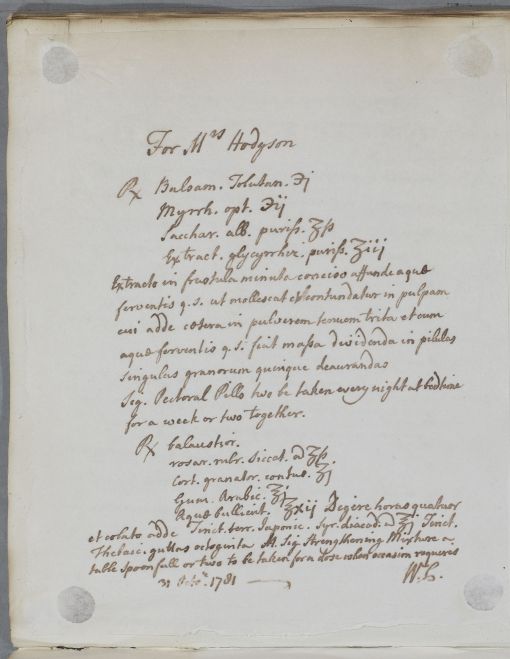 For Mrs Hodgson
℞ Balsam. Tolutan. ℈j
Myrrh. opt. ℈ij
Sacchar. alb. puriss. ʒß
Extract. glycyrrhiz. puriss. ʒiij
Extracto in frustula minuta conciso affunde aquæ
ferventis q. s. ut mollescat & contundatur in pulpam
cui adde cætera in pulverem tenuem trita et cum
aquæ ferventis q. s. fiat massa dividenda in pilulas
singulas granorum quinque deaurandas
Sig. Pectoral Pills two be taken every night at bedtime
for a week or two together.
℞ balaustior.
rosar. rubr. siccat. a ʒß.
Cort. granator. contus. ʒj
Gum. Arabic. ʒj
Aquæ bullient. ℥xij Digere horas quatuor
et colato adde Tinct. terr. Japonic. Syr. diacod. a ℥j Tinct.
Thebaic. guttas octoginta M. Sig. Strengthening Mixture a
table spoon full or two to be taken for a dose when occasion requires
31 Octr. 1781 W. h.